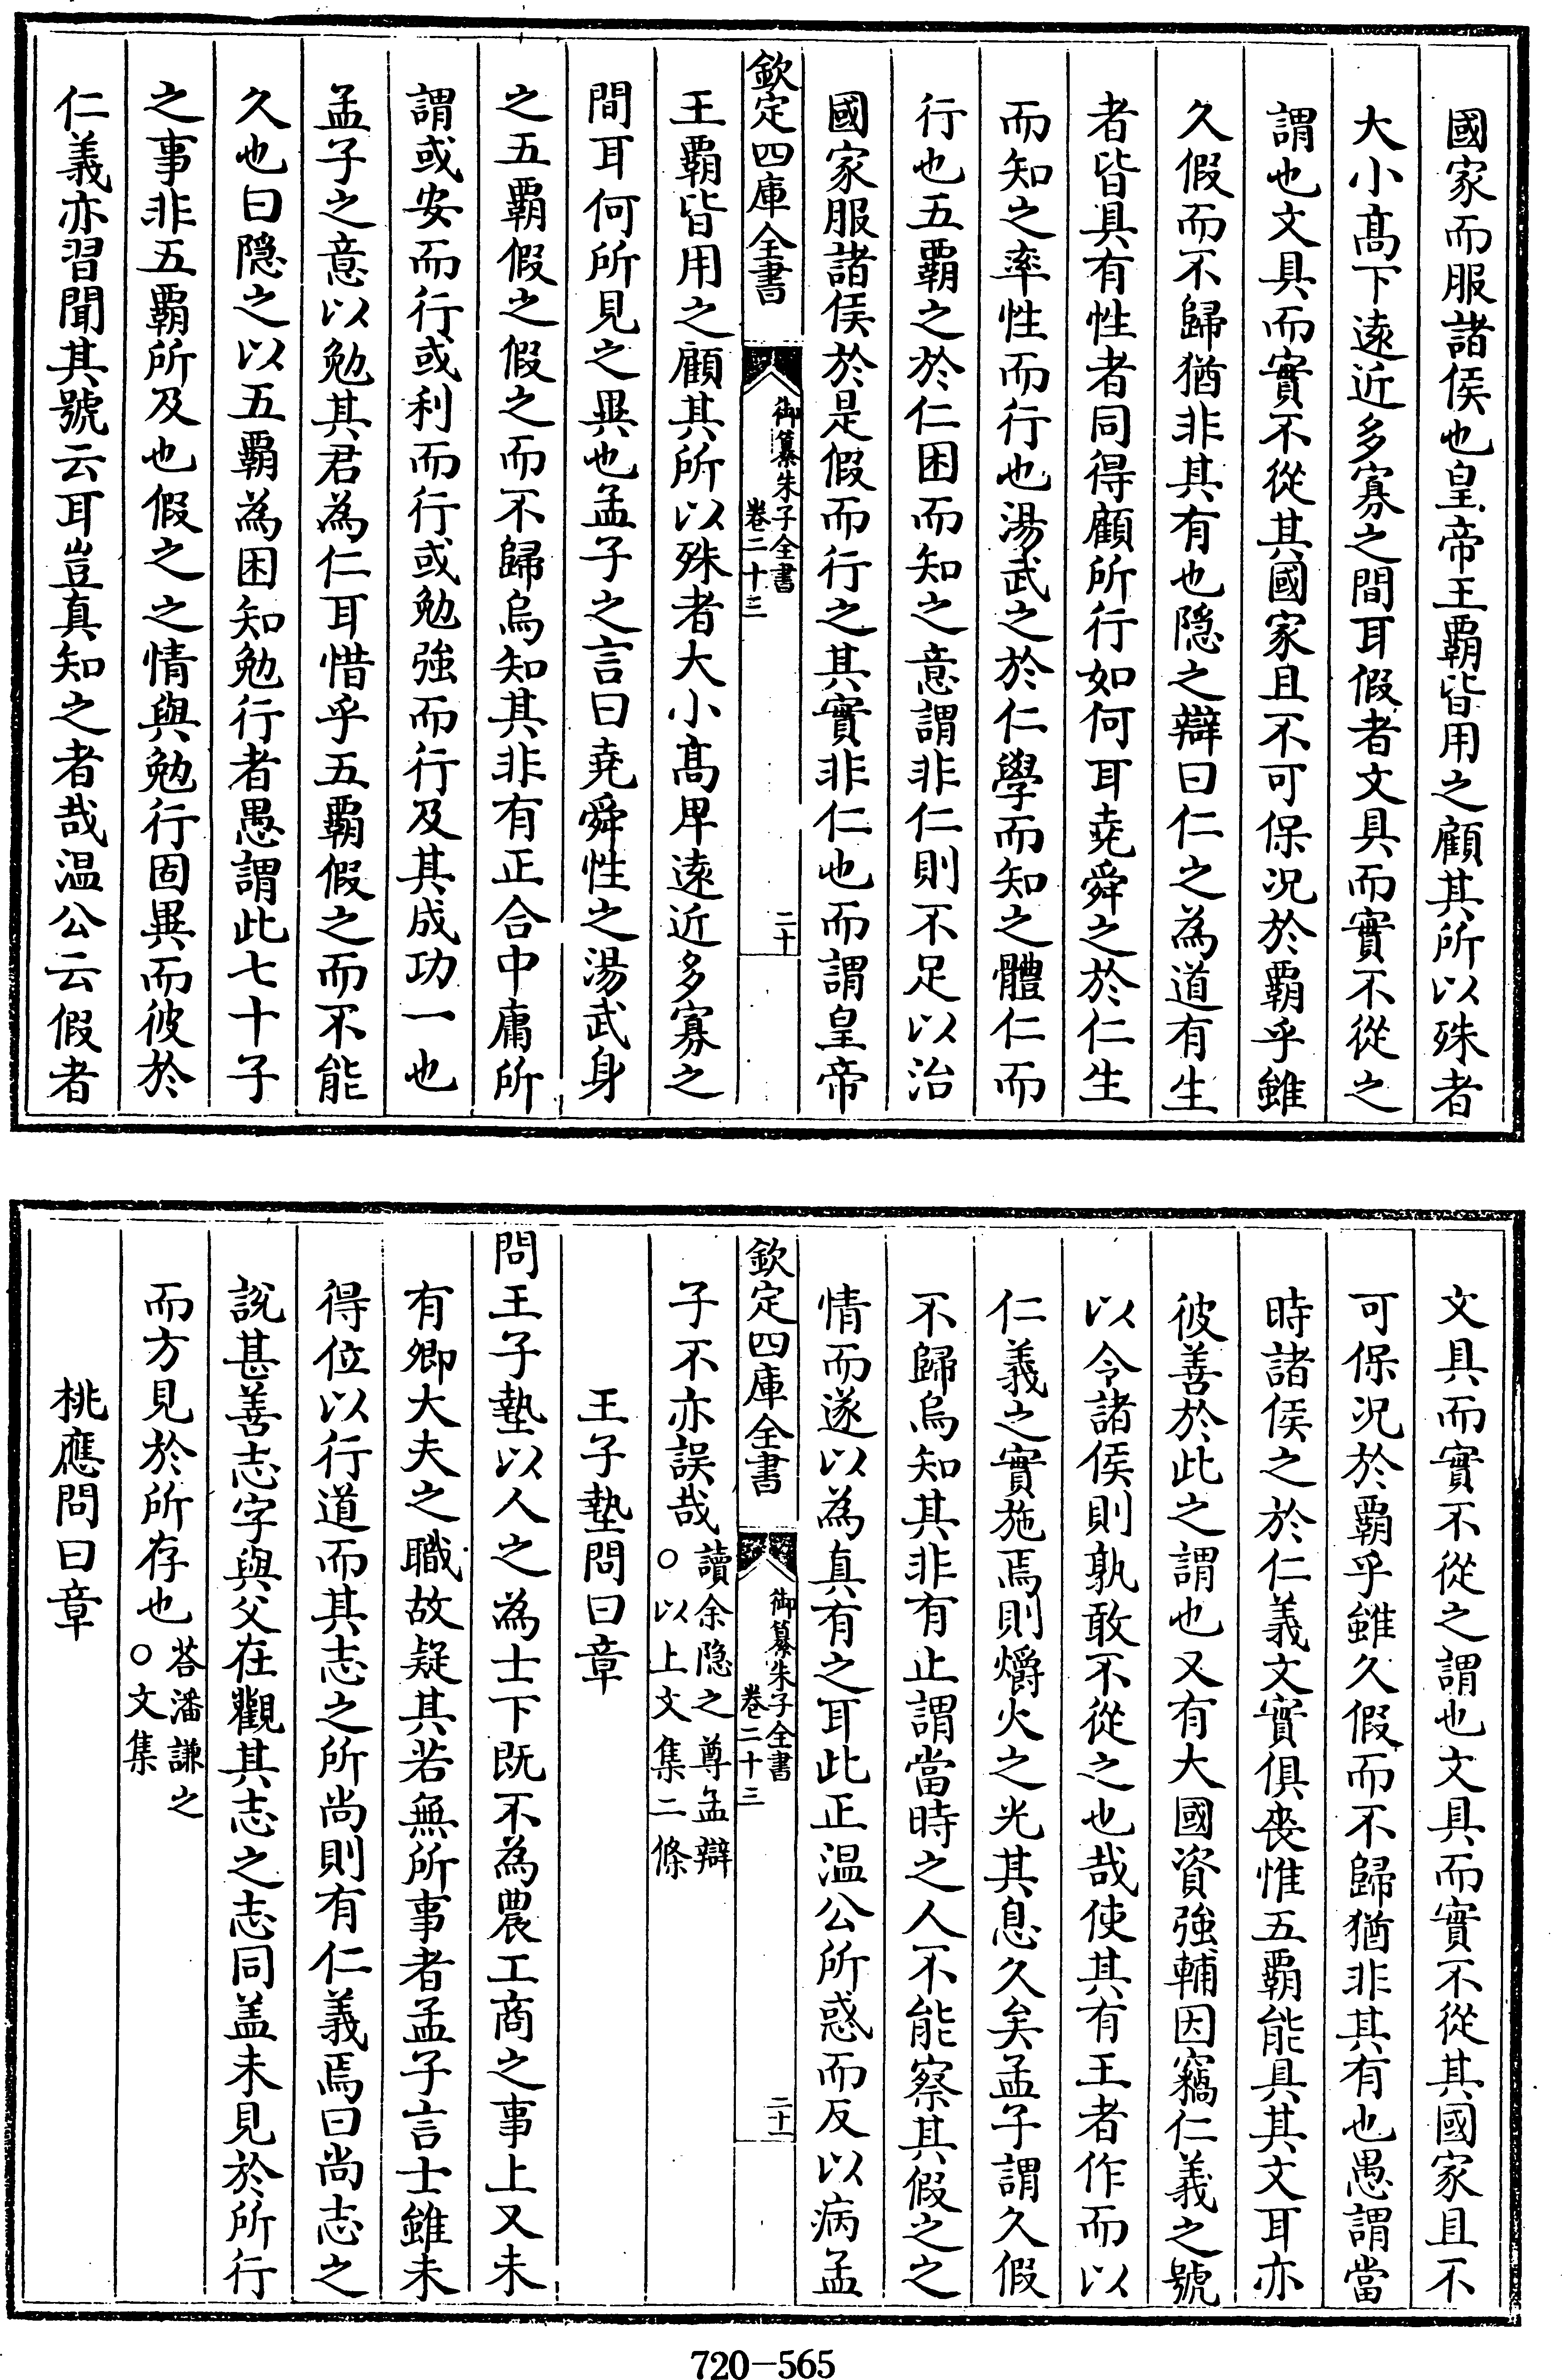 國家而服諸侯也皇帝王霸皆用之顧其所以殊者
大小髙下逺近多寡之間耳假者文具而實不從之
謂也文具而實不從其國家且不可保况於霸乎雖
久假而不歸猶非其有也隠之辯曰仁之為道有生
者皆具有性者同得顧所行如何耳堯舜之於仁生
而知之率性而行也湯武之於仁學而知之體仁而
行也五霸之於仁困而知之意謂非仁則不足以治
國家服諸侯於是假而行之其實非仁也而謂皇帝
欽定四庫全書
御纂朱子全書
卷二十三
二十
王霸皆用之顧其所以殊者大小髙卑逺近多寡之
間耳何所見之異也孟子之言曰堯舜性之湯武身
之五霸假之假之而不歸烏知其非有正合中庸所
謂或安而行或利而行或勉強而行及其成功一也
孟子之意以勉其君為仁耳惜乎五霸假之而不能
久也曰隠之以五霸為困知勉行者愚謂此七十子
之事非五霸所及也假之之情與勉行固異而彼於
仁義亦習聞其號云耳豈真知之者哉温公云假者
文具而實不從之謂也文具而實不從其國家且不
可保况於霸乎雖久假而不歸猶非其有也愚謂當
時諸侯之於仁義文實俱喪惟五霸能具其文耳亦
彼善於此之謂也又有大國資強輔因竊仁義之號
以令諸侯則孰敢不從之也哉使其有王者作而以
仁義之實施焉則爝火之光其息久矣孟子謂久假
不歸烏知其非有止謂當時之人不能察其假之之
情而遂以為真有之耳此正温公所惑而反以病孟
欽定四庫全書
御纂朱子全書
卷二十三
二十一
子不亦誤哉讀余隠之尊孟辯
○以上文集二條
王子墊問曰章
問王子墊以人之為士下既不為農工商之事上又未
有卿大夫之職故疑其若無所事者孟子言士雖未
得位以行道而其志之所尚則有仁義焉曰尚志之
説甚善志字與父在觀其志之志同盖未見於所行
而方見於所存也荅潘謙之
○文集
桃應問曰章
720-565